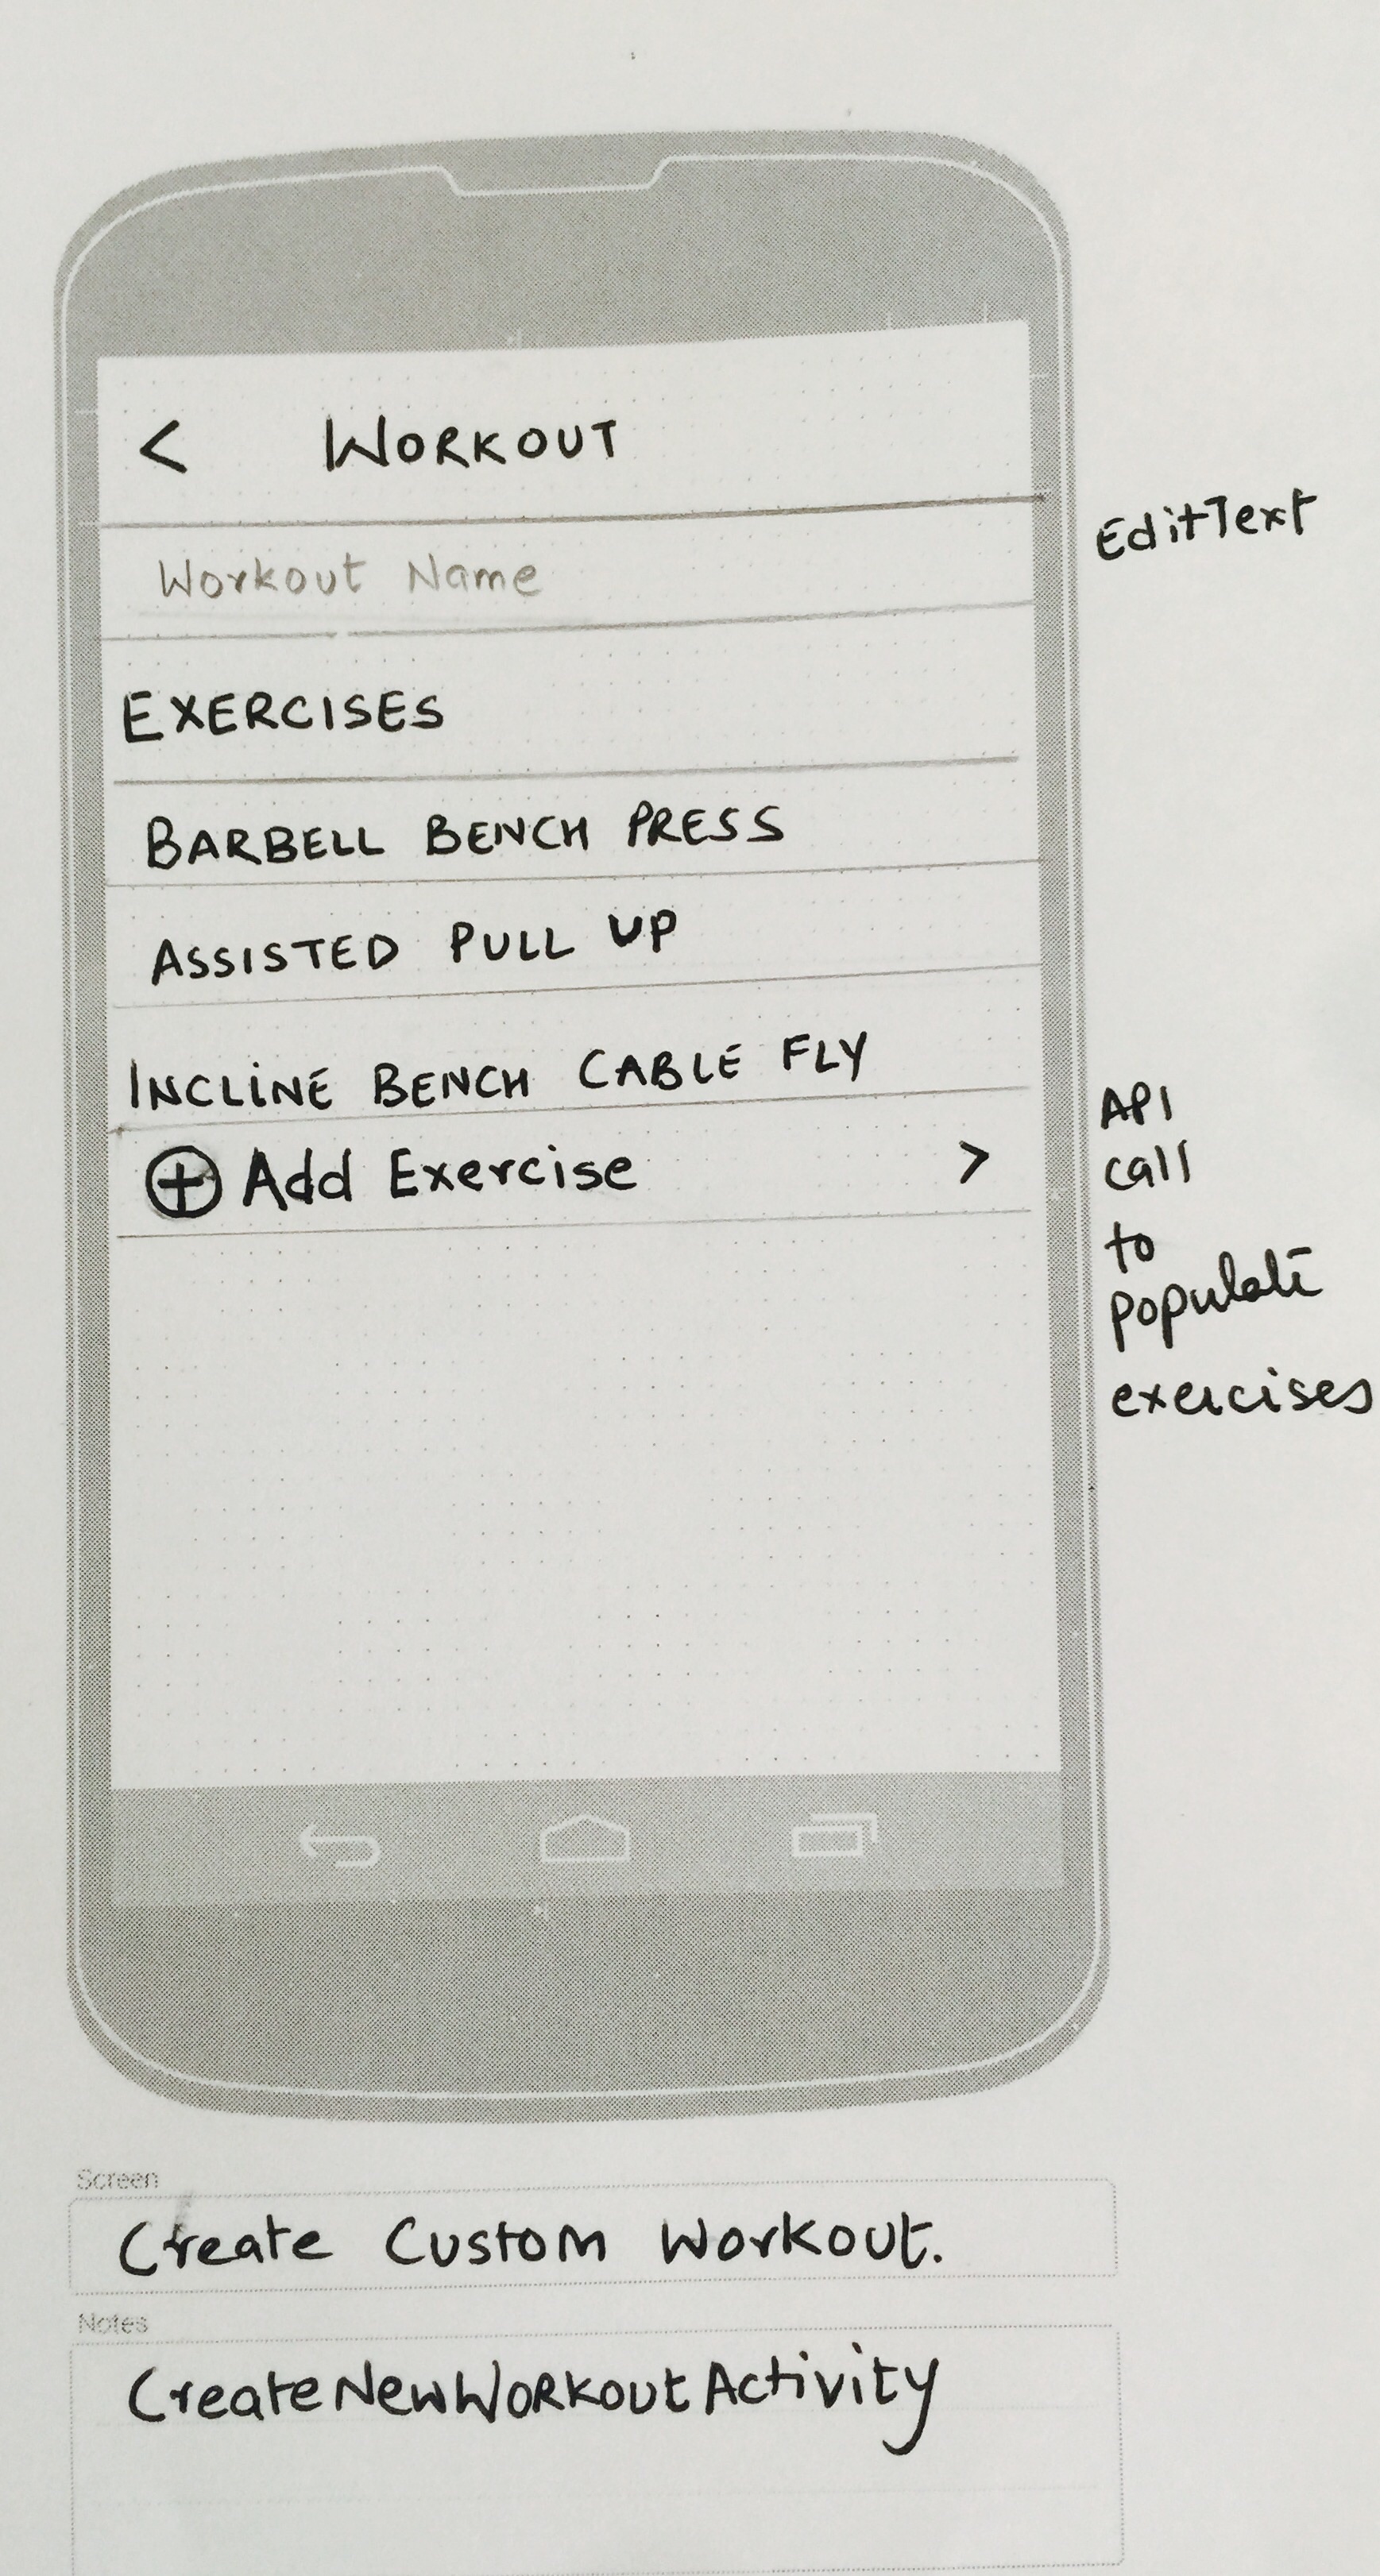 < WORKOUT
EditText
Workout Name
EXERCISES
BARBELL BENCH PRESS
ASSISTED PULL UP
INCLINE BENCH CABLE FLY
Add Exercise >
API
call
to
populate
exercises
Screen
Create Custom Workout.
Notes
CreateNewWorkoutActivity